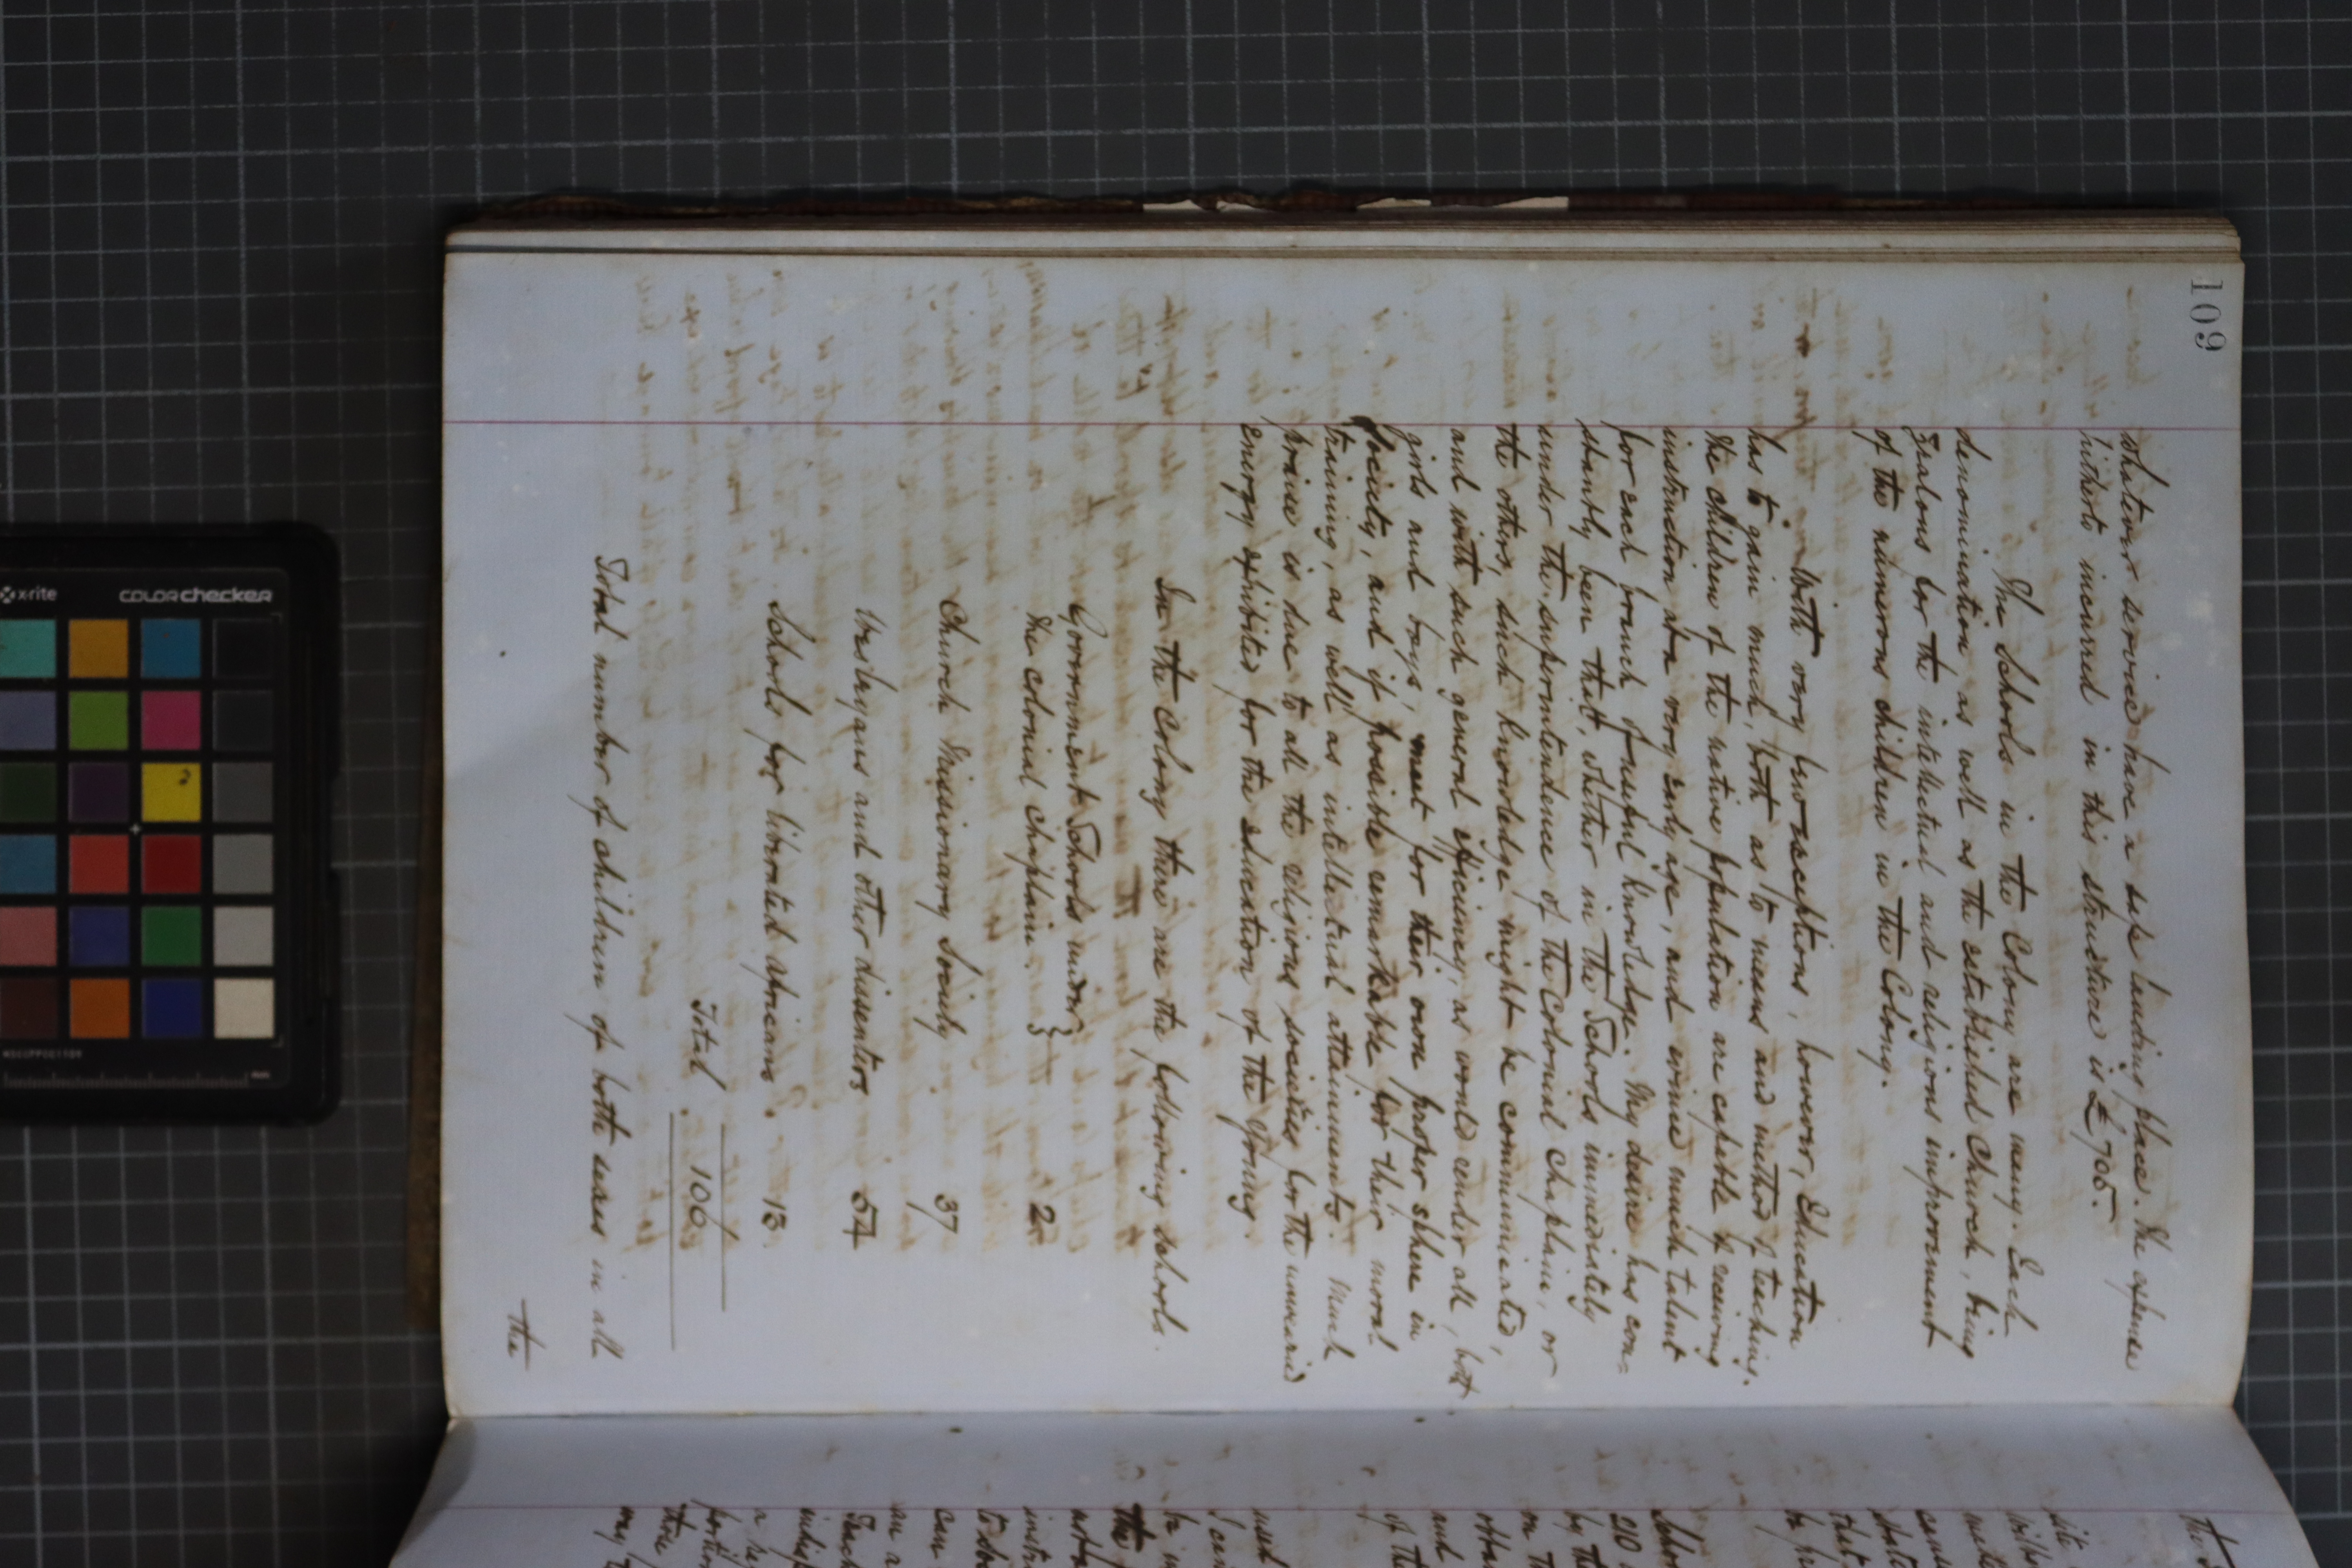 109
whatever service have a safe landing place. The expense
hitherto incurred in this structure is £705.—
The Schools in the Colony are many. Each
denomination as well as the established Church, being
zealous for the intellectual and religious improvement
of the numerous children in the Colony.
With very few exceptions, however, Education
has to gain much, both as to means and method of teaching.
The children of the native population are capable of receiving
instruction at a very early age, and evince much talent
for each branch of useful knowledge. My desire has con=
stantly been that, whether in the Schools immediately
under the superintendence of the Colonial Chaplain, or
the others, such knowledge might be communicated,
and with such general efficiency, as would render all, both
girls and boys, meet for their own proper sphere in
Society, and if possible remarkable for their moral
training, as well as intellectual attainments. Much
praise is due to all the religious societies for the unwearied
energy exhibited for the education of the Young.
In the Colony there are the following schools.
Government Schools under }
the colonial chaplain. } 2
Church Missionary Society 37
Wesleyans and other dissenters 54
Schools for liberated africans 13.
Total 106
Total number of children of both sexes in all
the
x-rite
COLORchecker
the